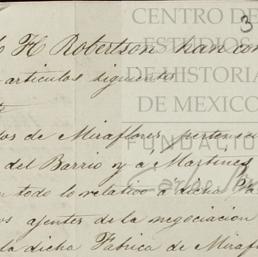 CENTRO DE
ESTUDIOS
DE HISTORIA
DE MEXICO
FUNDACIÓN
3
H Robertson han con
articulos siguientes
os de Miraflores, pertenec
del Barrio y a Martinez
todo lo relativo a dicha Fa
os ajentes de la negociacion
la dicha Fabrica de Miraf